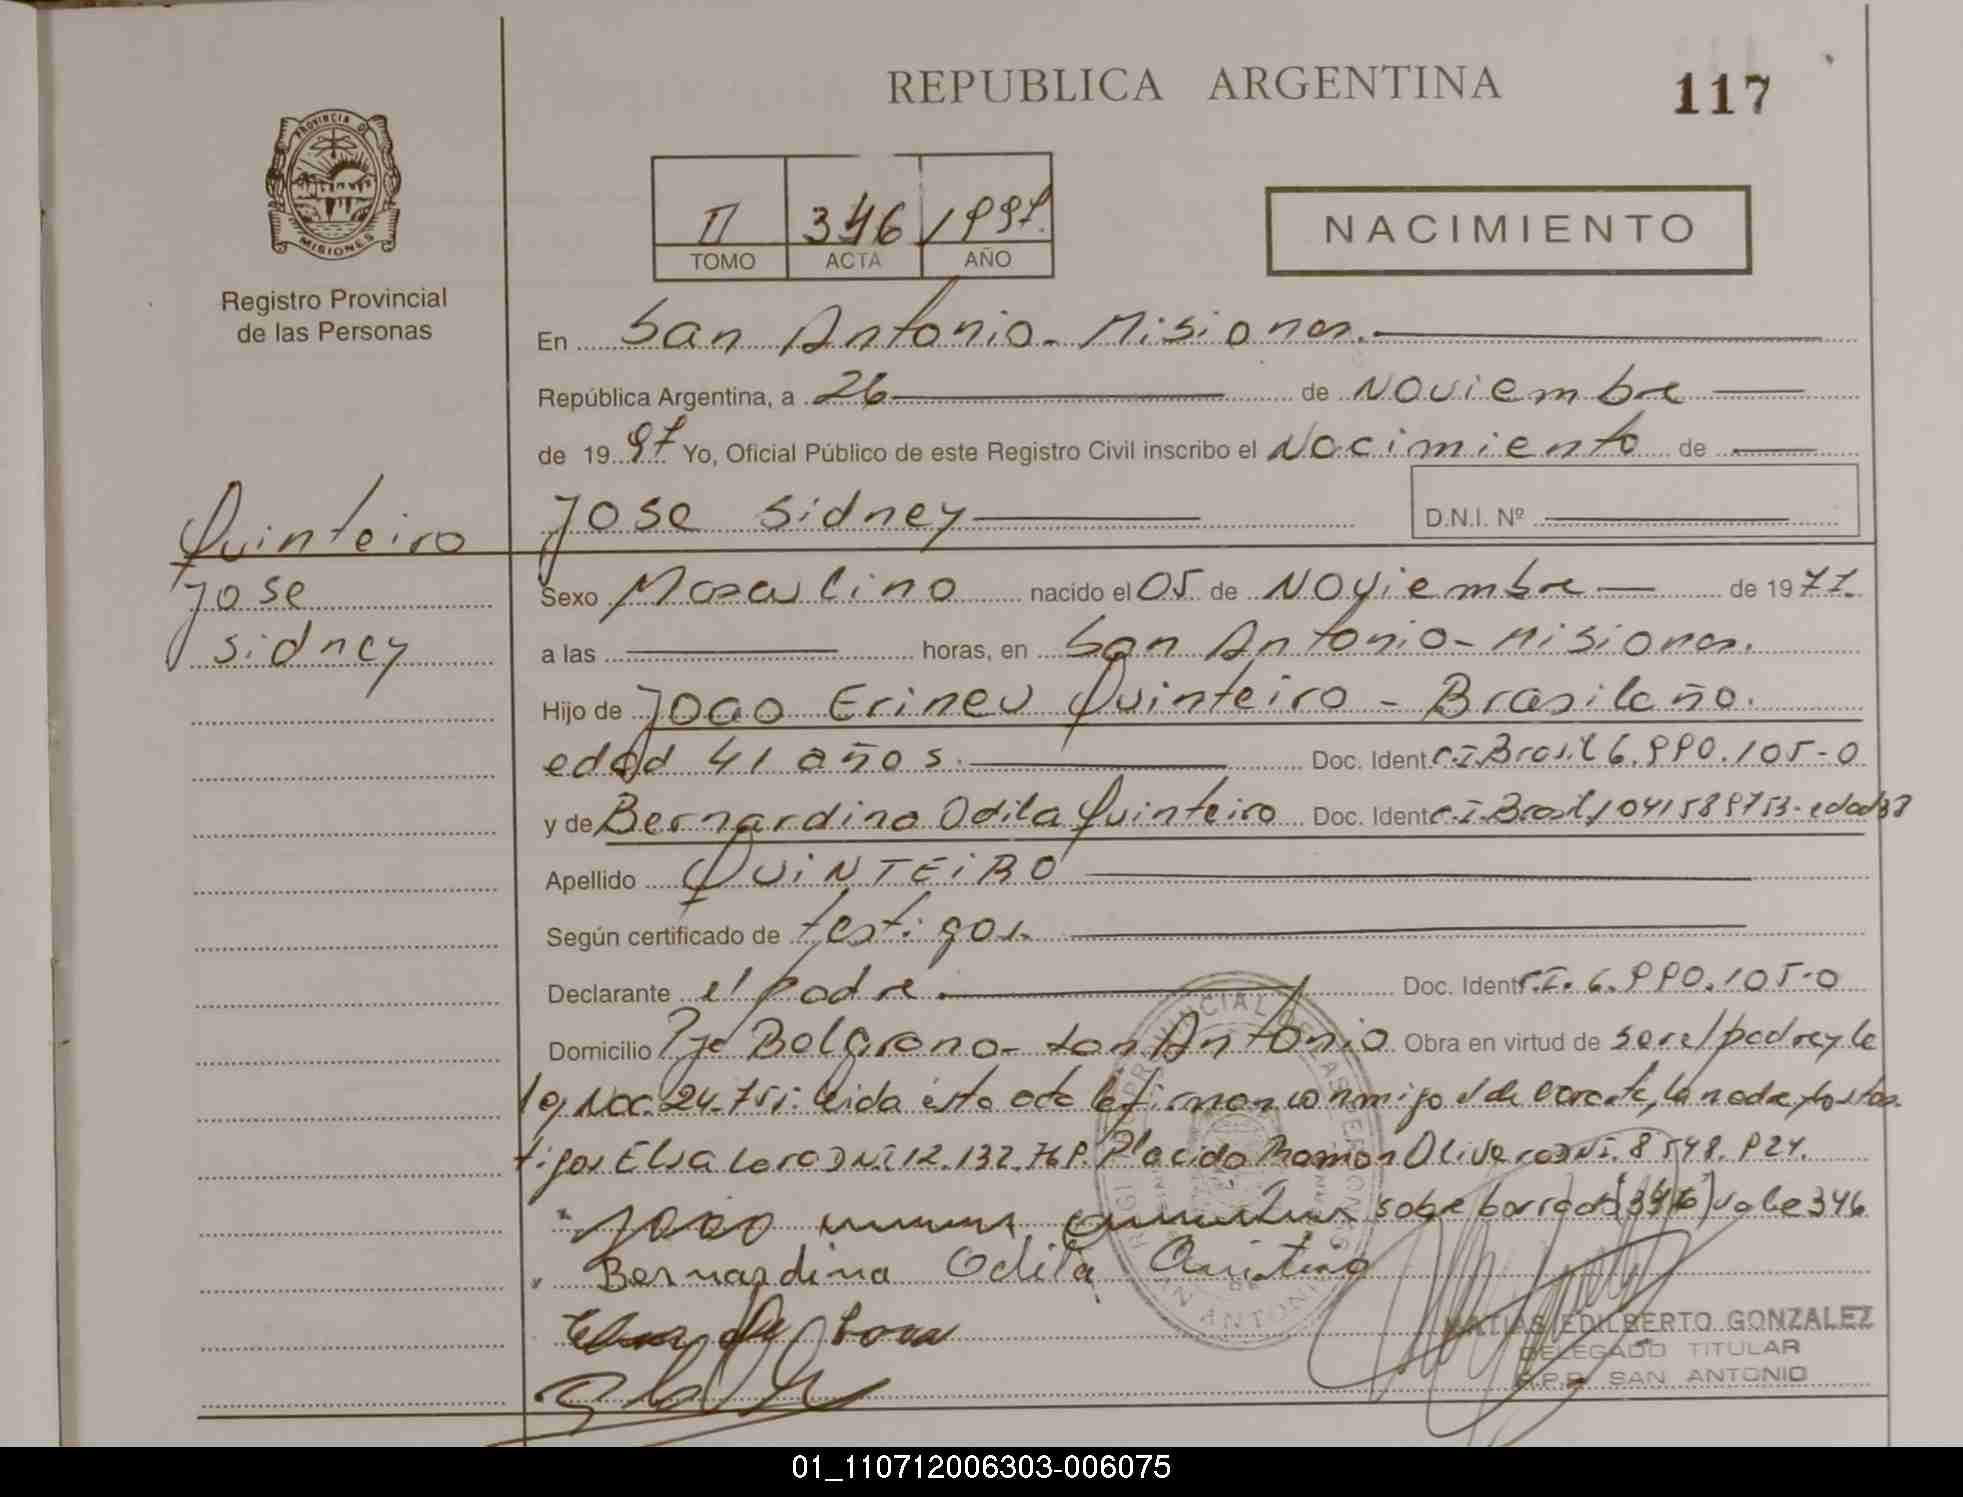 REPUBLICA ARGENTINA
117
PROVINCIA DE
MISIONES
Registro Provincial
de las Personas
II 346 1997.
TOMO ACTA AÑO
NACIMIENTO
En San Antonio - Misiones.
República Argentina, a 26 de Noviembre
de 1997 Yo, Oficial Público de este Registro Civil inscribo el Nacimiento de
Jose Sidney
D.N.I. Nº
Quinteiro
Jose
Sidney
Sexo Masculino nacido el 05 de Noviembre de 1977.
a las horas, en San Antonio - Misiones.
Hijo de Joao Erineu Quinteiro - Brasileño.
edad 41 años. Doc. Ident C.I. Brasil 6.990.105-0
y de Bernardina Odila Quinteiro Doc. Ident C.I. Brasil 1041589753 - edad 38
Apellido QUINTEIRO
Según certificado de testigos.
Declarante el padre. Doc. Ident C.I. 6.990.105-0
Domicilio Pje Belgrano - San Antonio Obra en virtud de ser el padre y le
leida esta acta la firman conmigo la madre y los tes
tigos Elsa Lara DNI 12.132.769. Placido Ramon Olivera DNI. 8 548. 924.
Joao sobre borrado (346) vale 346
Bernardina Odila
MATIAS EDILBERTO GONZALEZ
DELEGADO TITULAR
R.P.P. SAN ANTONIO
01_110712006303-006075